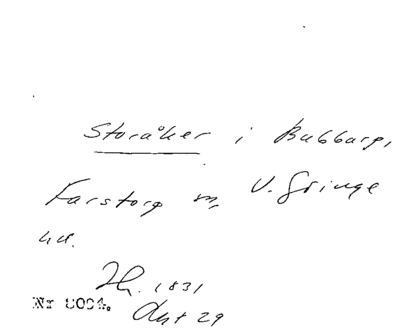 Storåker i Bubbarp,
Farstorp sn, V. Göinge
hd.
Zh. 1831
Nr 8004. Akt 29